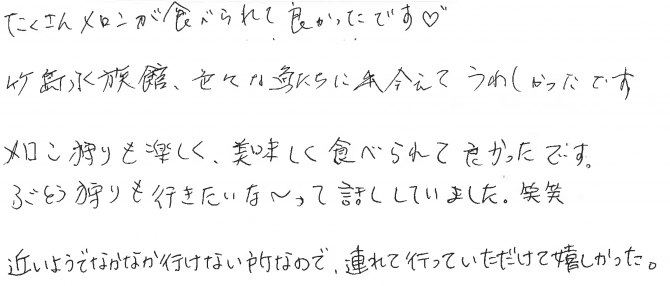 たくさんメロンが食べられて良かったです♡
竹島水族館、色々な魚たちに出会えてうれしかったです
メロン狩りも楽しく、美味しく食べられて良かったです。
ぶどう狩りも行きたいな〜って話ししていました。笑笑
近いようでなかなか行けない所なので、連れて行っていただけて嬉しかった。